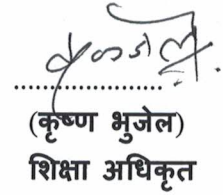 ......................
(कृष्ण भुजेल)
शिक्षा अधिकृत